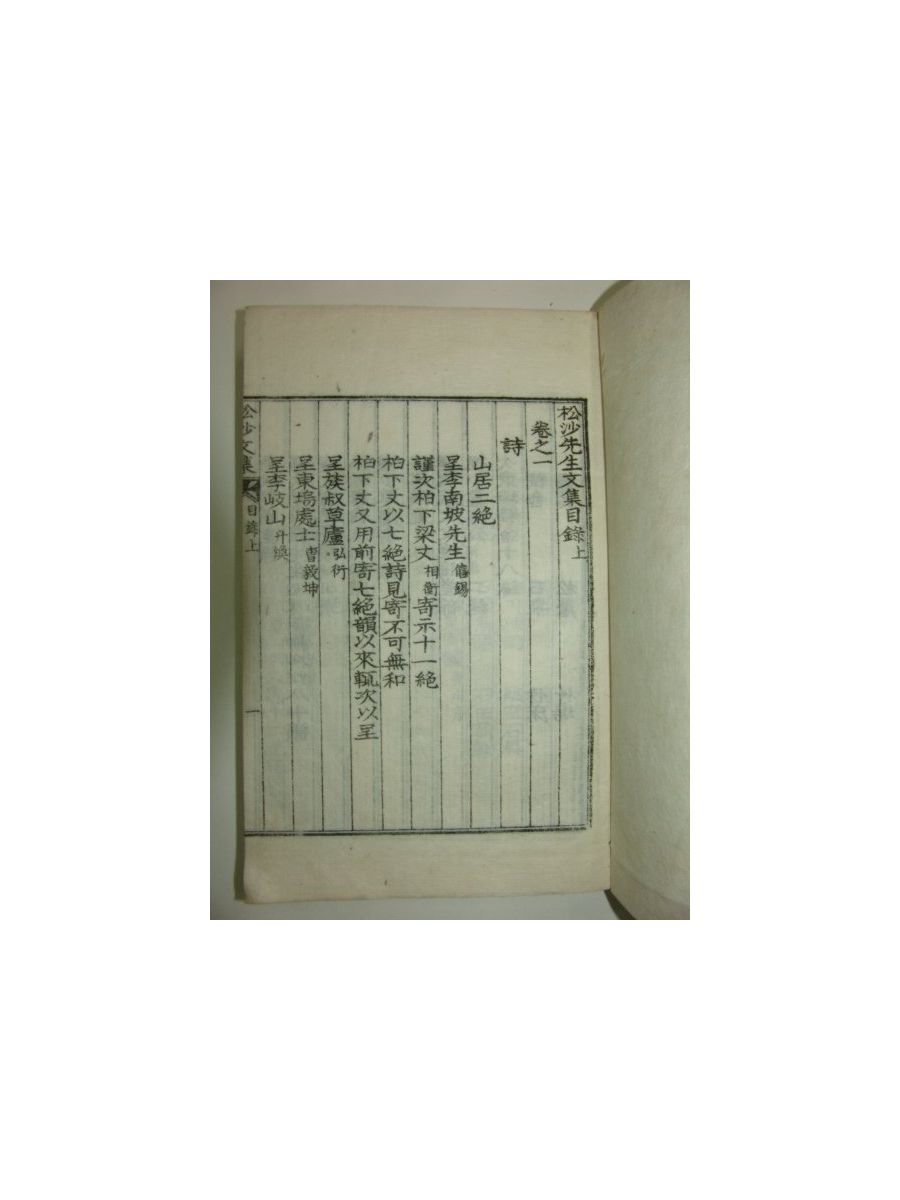 松沙先生文集目錄上
卷之一
詩
山居二絶
呈李南坡先生僖錫
謹次柏下梁丈相衡寄示十一絶
柏下丈以七絶詩見寄不可無和
柏下丈又用前寄七絶韻以來輒次以呈
呈族叔草廬弘衍
呈東塢處士曺毅坤
呈李岐山升煥
松沙文集
目錄上
一